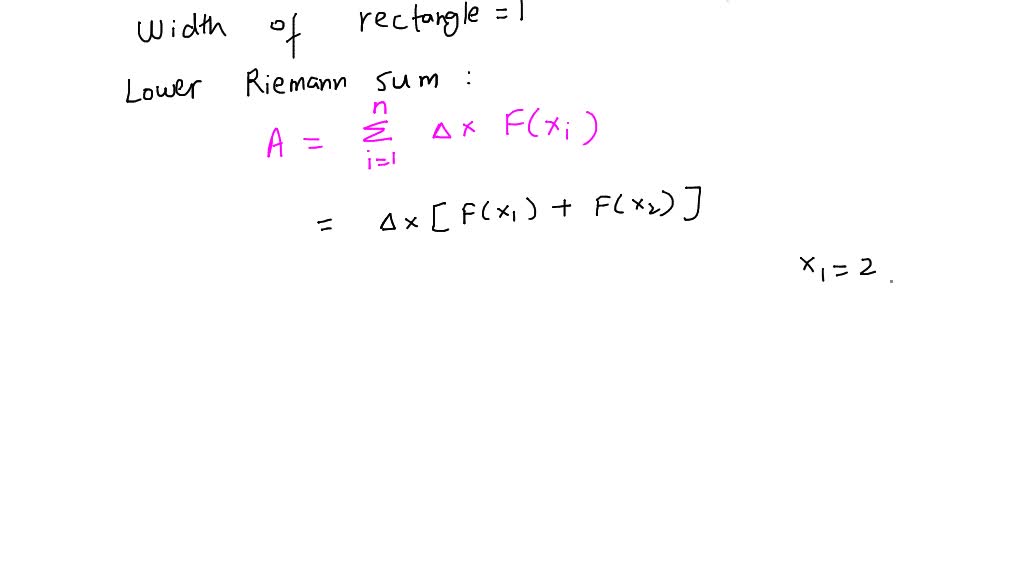 Width of rectangle = 1
Lower Riemann sum :
A = n∑i=1 Δx F(xi)
= Δx [ F(x1) + F(x2) ]
x1 = 2 .